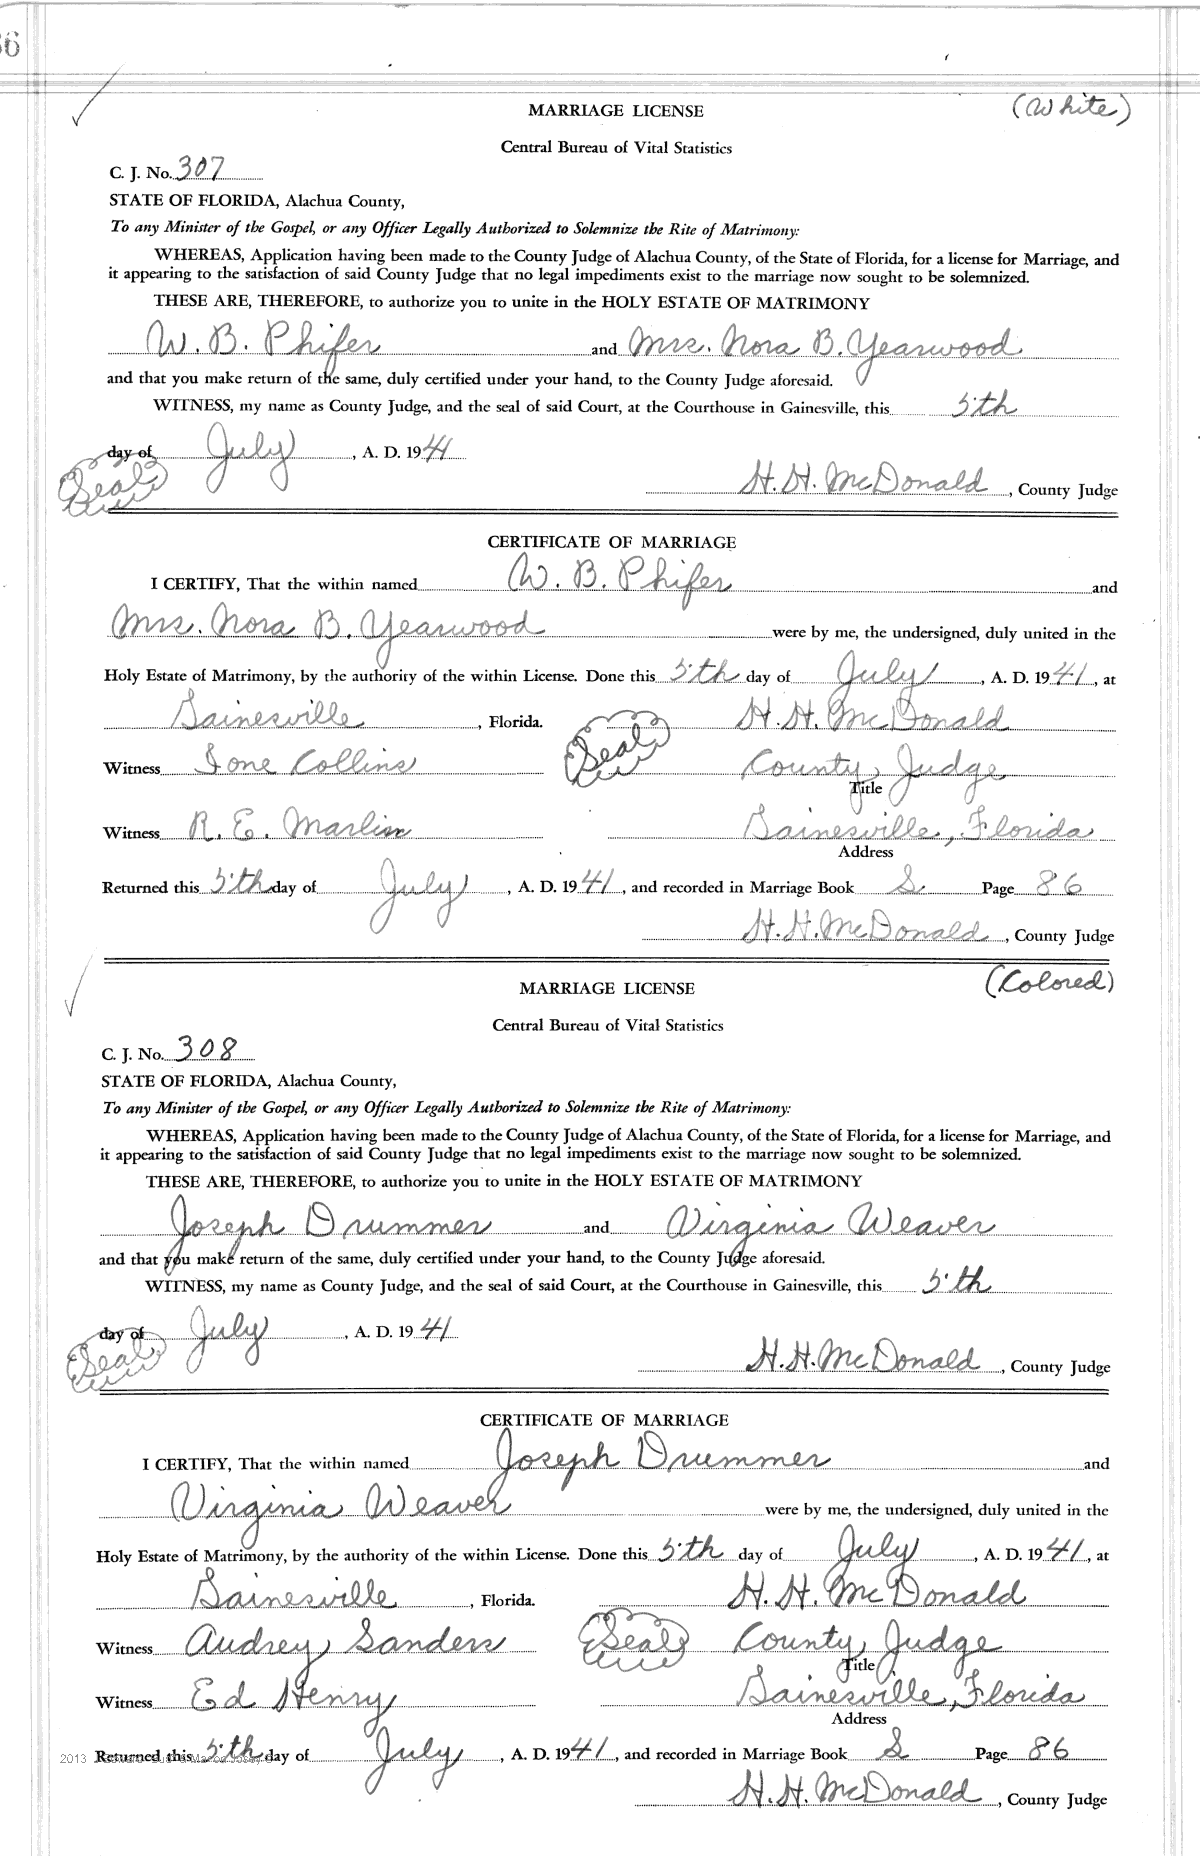 86
MARRIAGE LICENSE (White)
Central Bureau of Vital Statistics
C. J. No. 307
STATE OF FLORIDA, Alachua County,
To any Minister of the Gospel, or any Officer Legally Authorized to Solemnize the Rite of Matrimony:
WHEREAS, Application having been made to the County Judge of Alachua County, of the State of Florida, for a license for Marriage, and
it appearing to the satisfaction of said County Judge that no legal impediments exist to the marriage now sought to be solemnized.
THESE ARE, THEREFORE, to authorize you to unite in the HOLY ESTATE OF MATRIMONY
W. B. Phifer and Mrs. Nora B. Yearwood
and that you make return of the same, duly certified under your hand, to the County Judge aforesaid.
WITNESS, my name as County Judge, and the seal of said Court, at the Courthouse in Gainesville, this 5th
day of July, A. D. 1941
(Seal) H. H. McDonald, County Judge
CERTIFICATE OF MARRIAGE
I CERTIFY, That the within named W. B. Phifer and
Mrs. Nora B. Yearwood were by me, the undersigned, duly united in the
Holy Estate of Matrimony, by the authority of the within License. Done this 5th day of July, A. D. 1941, at
Gainesville, Florida. H. H. McDonald
Witness Ione Collins (Seal) County Judge
Title
Witness R. E. Marlin Gainesville, Florida
Address
Returned this 5th day of July, A. D. 1941, and recorded in Marriage Book S Page 86
H. H. McDonald, County Judge
MARRIAGE LICENSE (Colored)
Central Bureau of Vital Statistics
C. J. No. 308
STATE OF FLORIDA, Alachua County,
To any Minister of the Gospel, or any Officer Legally Authorized to Solemnize the Rite of Matrimony:
WHEREAS, Application having been made to the County Judge of Alachua County, of the State of Florida, for a license for Marriage, and
it appearing to the satisfaction of said County Judge that no legal impediments exist to the marriage now sought to be solemnized.
THESE ARE, THEREFORE, to authorize you to unite in the HOLY ESTATE OF MATRIMONY
Joseph Drummer and Virginia Weaver
and that you make return of the same, duly certified under your hand, to the County Judge aforesaid.
WITNESS, my name as County Judge, and the seal of said Court, at the Courthouse in Gainesville, this 5th
day of July, A. D. 1941
(Seal) H. H. McDonald, County Judge
CERTIFICATE OF MARRIAGE
I CERTIFY, That the within named Joseph Drummer and
Virginia Weaver were by me, the undersigned, duly united in the
Holy Estate of Matrimony, by the authority of the within License. Done this 5th day of July, A. D. 1941, at
Gainesville, Florida. H. H. McDonald
Witness Audrey Sanders (Seal) County Judge
Title
Witness Ed Henry Gainesville, Florida
Address
2013 Returned this 5th day of July, A. D. 1941, and recorded in Marriage Book S Page 86
H. H. McDonald, County Judge